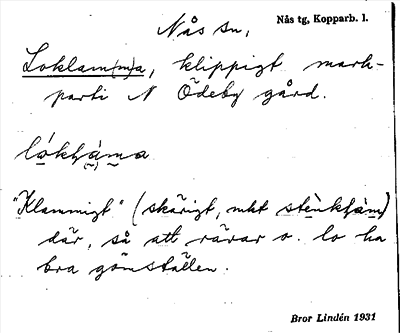 Nås sn,
Nås tg, Kopparb. l.
Loklam(m)a, klippigt mark-
parti N Ödeby gård.
lókḷama
"Klammigt" (skärigt, mkt stènkḷam)
där, så att rävar o. lo ha
bra gömställen.
Bror Lindén 1931